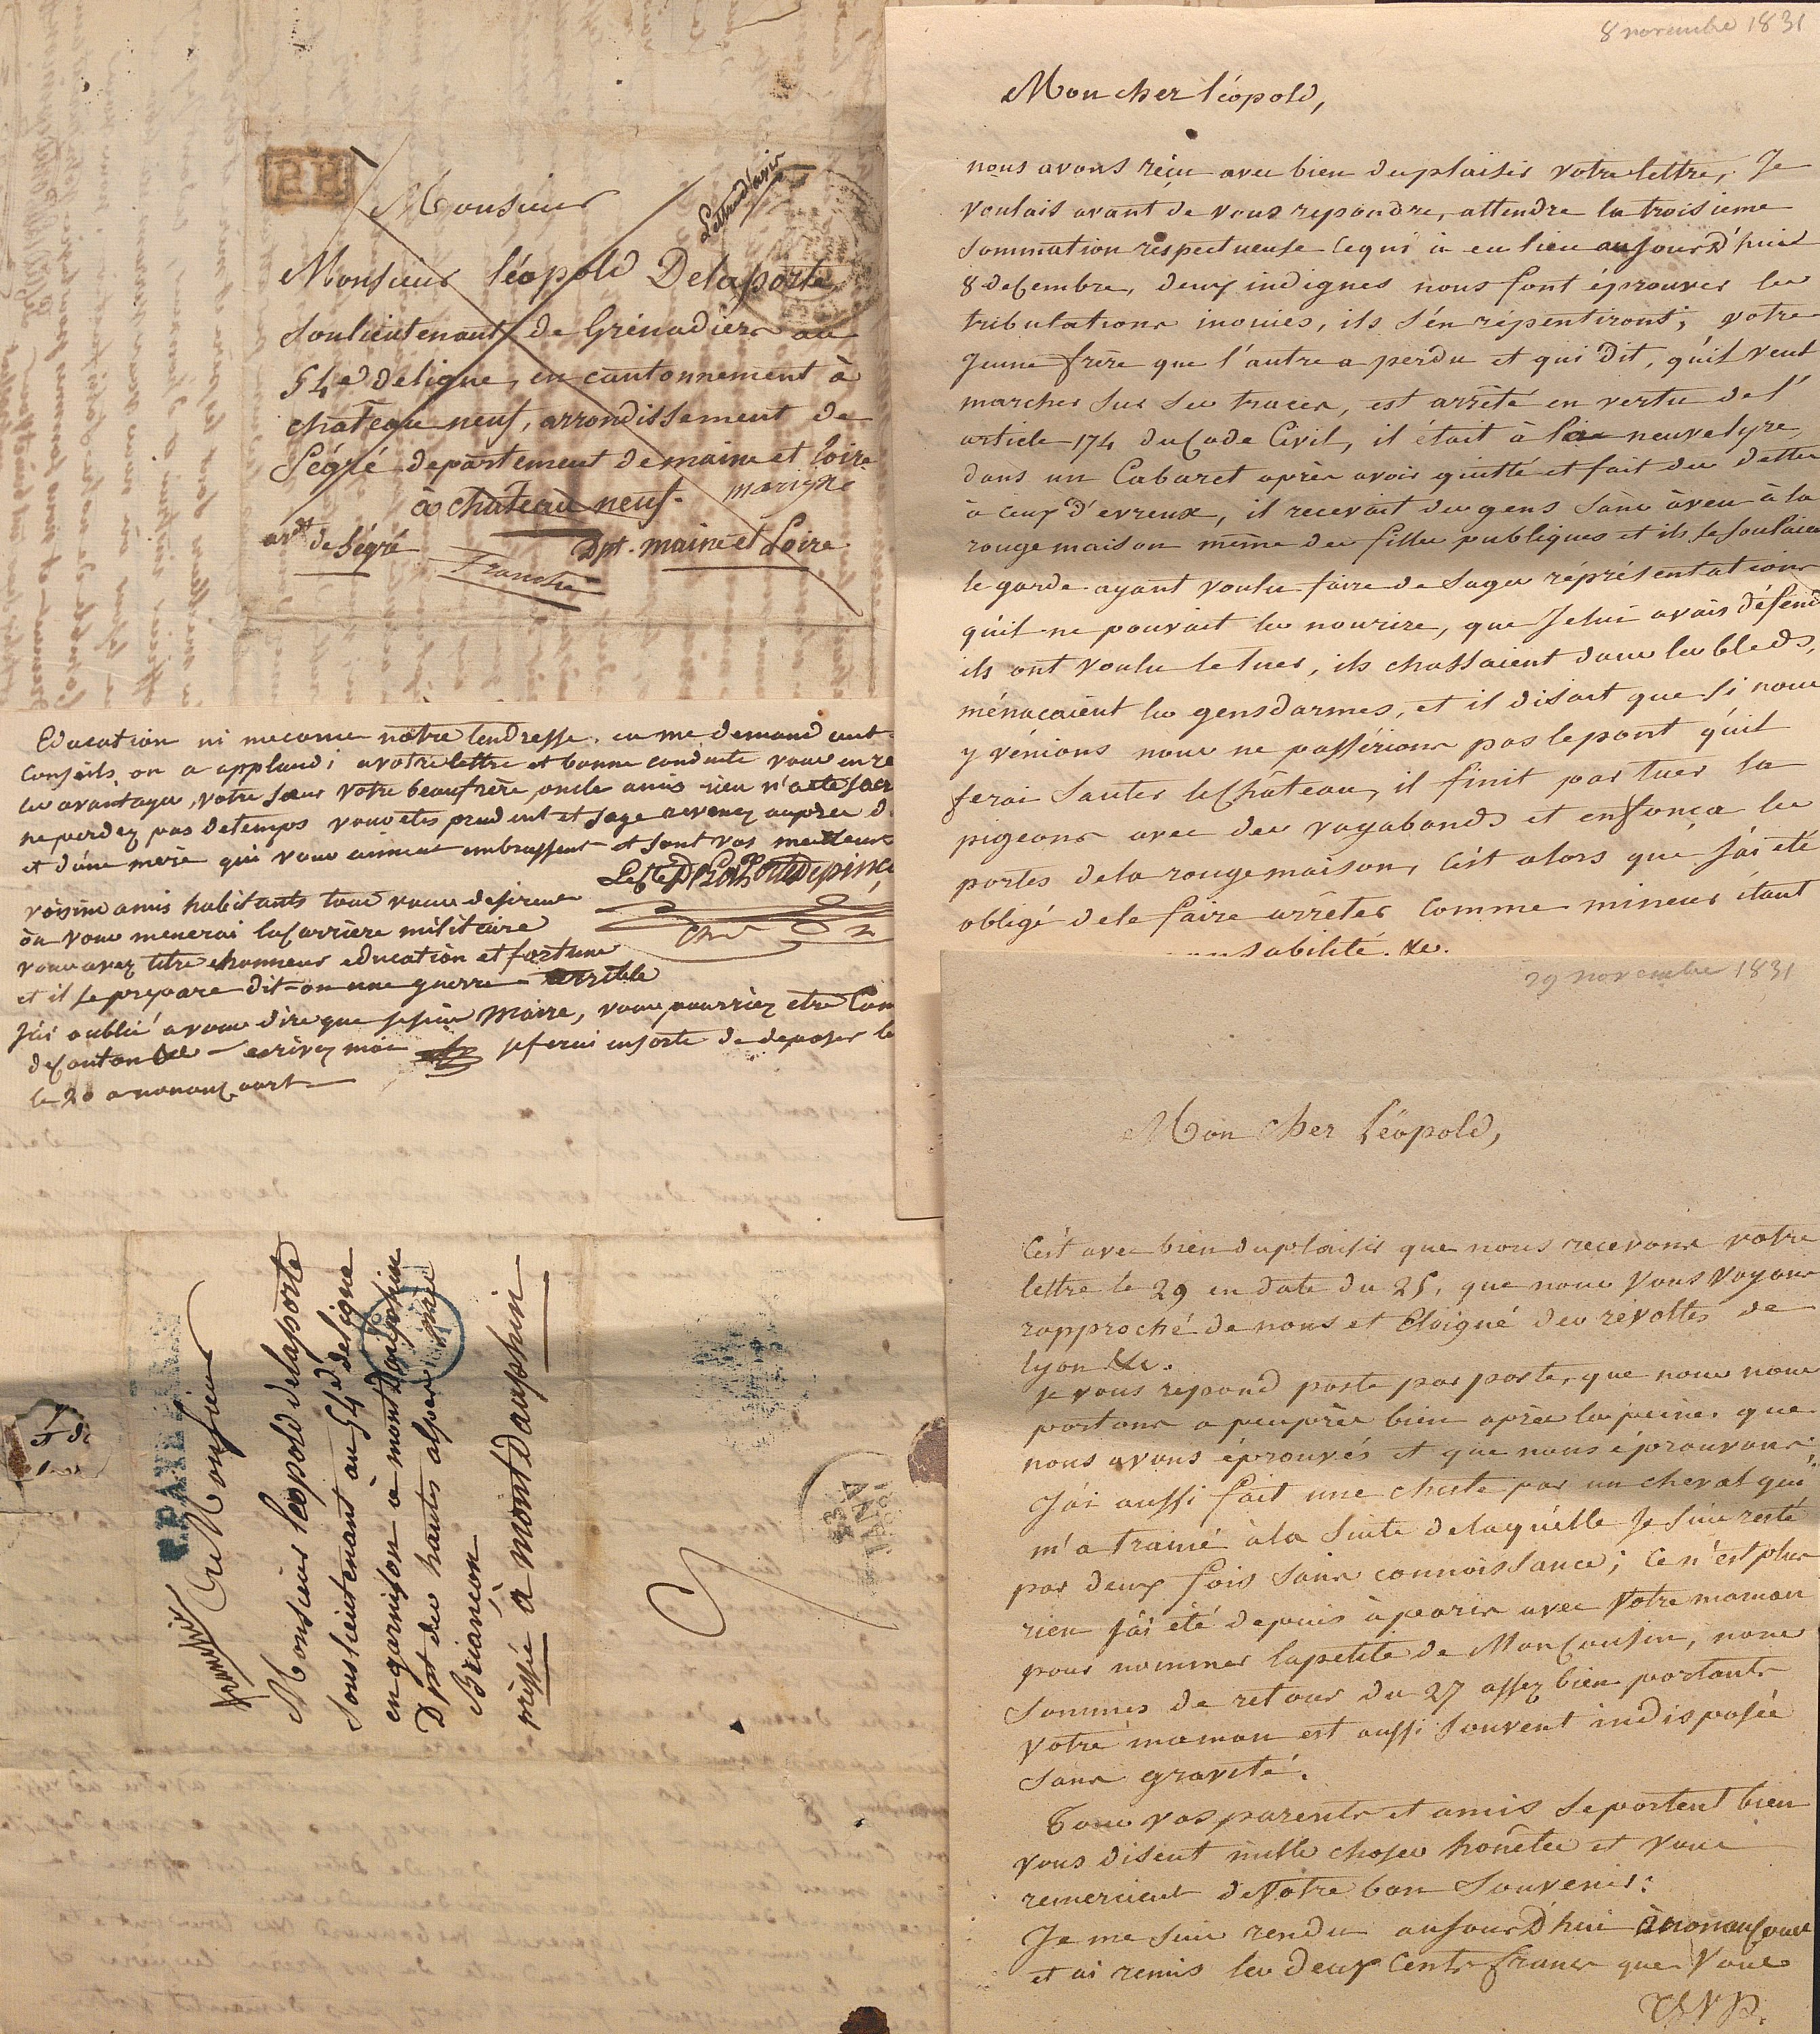 P.P.
Monsieur
Lettre d'avis
Monsieur léopold Delaporte
souslieutenant de Grenadiers au
54e deligne, en cantonnement à
chateau neuf, arrondissement de
Ségré departement de maine et Loire
marigné
à chateau neuf.
ardt de Ségré Dpt. maine et Loire
Franche
Education ni meconnu notre tendresse.
conseils on a applaudi a votre lettre et bonne conduite vous en
les avantages, votre soeur votre beaufrère, oncle amis rien n'a été
ne perdez pas detemps vous etes prudent et sage revenez aupres d
et d'une mere qui vous aiment embrassent et sont vos meilleurs
voisins amis habitants tous vous desirent
où vous menerai la Carrière militaire
vous avez titre honneur education et fortune
et il se prepare dit-on une guerre terrible
J'ai oublié a vous dire que je suis Maire, vous pourriez etre Com
de Canton &c - ecrivez moi je ferai ensorte de deposer le
le 20 a nonancourt
P.PAYE
franche
A Monsieur
Monsieur léopold delaporte
souslieutenant au 54e deligne
en garnison à mont Dauphin
Dpt des hautes alpes près
Briançon
pressée à Mont Dauphin
8 novembre 1831
Mon cher léopold,
nous avons réçu avec bien duplaisir votre lettre, Je
voulais avant de vous repondre, attendre la troisieme
sommation réspectueuse cequi à eu lieu aujourd'huie
8 decembre, deux indignes nous font éprouver les
tribulations inouies, ils s'en répentiront; votre
jeune frère que l'autre a perdu et qui dit, qu'il veut
marcher sur ses traces, est arrêté en vertu de l'
article 174 du Code Civil, il était à la neuvelyre,
dans un Cabaret après avoir quitté et fait des dettes
à ceux d'evreux, il recevait des gens sans àveu à la
rougemaison même des filles publiques et ils se soulaien
le garde ayant voulu faire de sages réprésentations
qu'il ne pouvait les nourire, que Je lui avais défend
ils ont voulu le tuer, ils chassaient dans les bleds,
ménaçaient les gensdarmes, et il disait que si nous
y vénions nous ne passérions pas lepont qu'il
ferai sauter le Château, il finit par tuer la
pigeons avec des vagabonds et enfonça les
portes dela rougemaison, c'est alors que j'ai été
obligé dele faire arrêter comme mineur étant
sabilité. &c.
29 novembre 1831
Mon cher Léopold,
C'est avec bien duplaisir que nous recevons votre
lettre le 29 en date du 25, que nous vous voyons
rapproché de nous et Eloigné des révoltes de
lyon &c.
je vous repond poste par poste, que nous nous
portons a peuprès bien après les peines que
nous avons éprouvés et que nous éprouvons.
J'ai aussi fait une chute par un cheval qui
m'a trainé à la suite delaquelle Je suis resté
par deux fois sans connoissance; ce n'est plus
rien j'ai été depuis à paris avec votre maman
pour nommer lapetite de Mon Cousin, nous
sommes de retour du 27 assez bien portants
votre maman est aussi souvent indisposée
sans gravité.
Tous vos parents et amis se portent bien
vous disent mille choses honêtes et vous
remercient de Votre bon Souvenir:
Je me suis rendu aujourd'hui à nonancourt
et ai remis les deux Cents francs que Vous
TSVP.